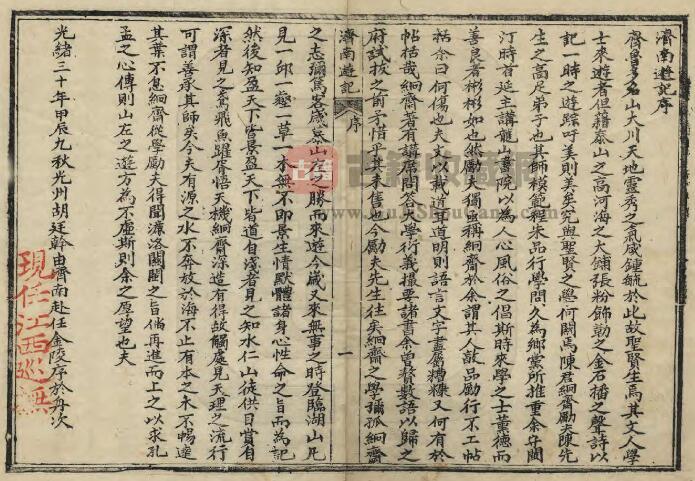 濟南遊記序
齊魯多名山大川天地靈秀之氣咸鍾毓於此故聖賢生焉其文人學
士來遊者但藉泰山之高河海之大鋪張粉飾勒之金石播之聲詩以
記一時之遊踪吁美則美矣究與聖賢之學何關焉陳君絅齋勵夫陳先
生之高足弟子也其師模範程朱品行學問久為鄉黨所推重余守關
汀時首延主講龍山書院以為人心風俗之倡斯時來學之士董德而
善良者彬彬如也然勵夫獨亟稱絅齋於余謂其人敦品勵行不工帖
括余曰何傷也夫文以載道耳道明則語言文字盡屬糟糠又何有於
帖括哉絅齋著有講席問答及學術義撮要諸書余曾贅數語以歸之
府試拔之前茅惜乎其未售也今勵夫先生往矣絅齋之學彌孤絅齋
濟南遊記 序 一
之志彌篤客歲慕山左之勝而來遊今歲又來無事之時登臨湖山凡
見一邱一壑一草一木無不即景生情默體諸身心性命之旨而為記
然後知盈天下皆景盈天下皆道自淺者見之知水仁山徒供目賞自
深者見之鳶飛魚躍胥悟天機絅齋深造有得故觸處見天理之流行
可謂善承其師矣今夫有源之水不奔放於海不止有本之木不暢達
其葉不息絅齋從學勵夫得聞濂洛關閩之旨倘再進而上之以求孔
孟之心傳則山左之遊方為不虛斯則余之厚望也夫
光緒三十年甲辰九秋光州胡廷幹由濟南赴任金陵序於舟次
現任江西巡撫
古籍收藏網